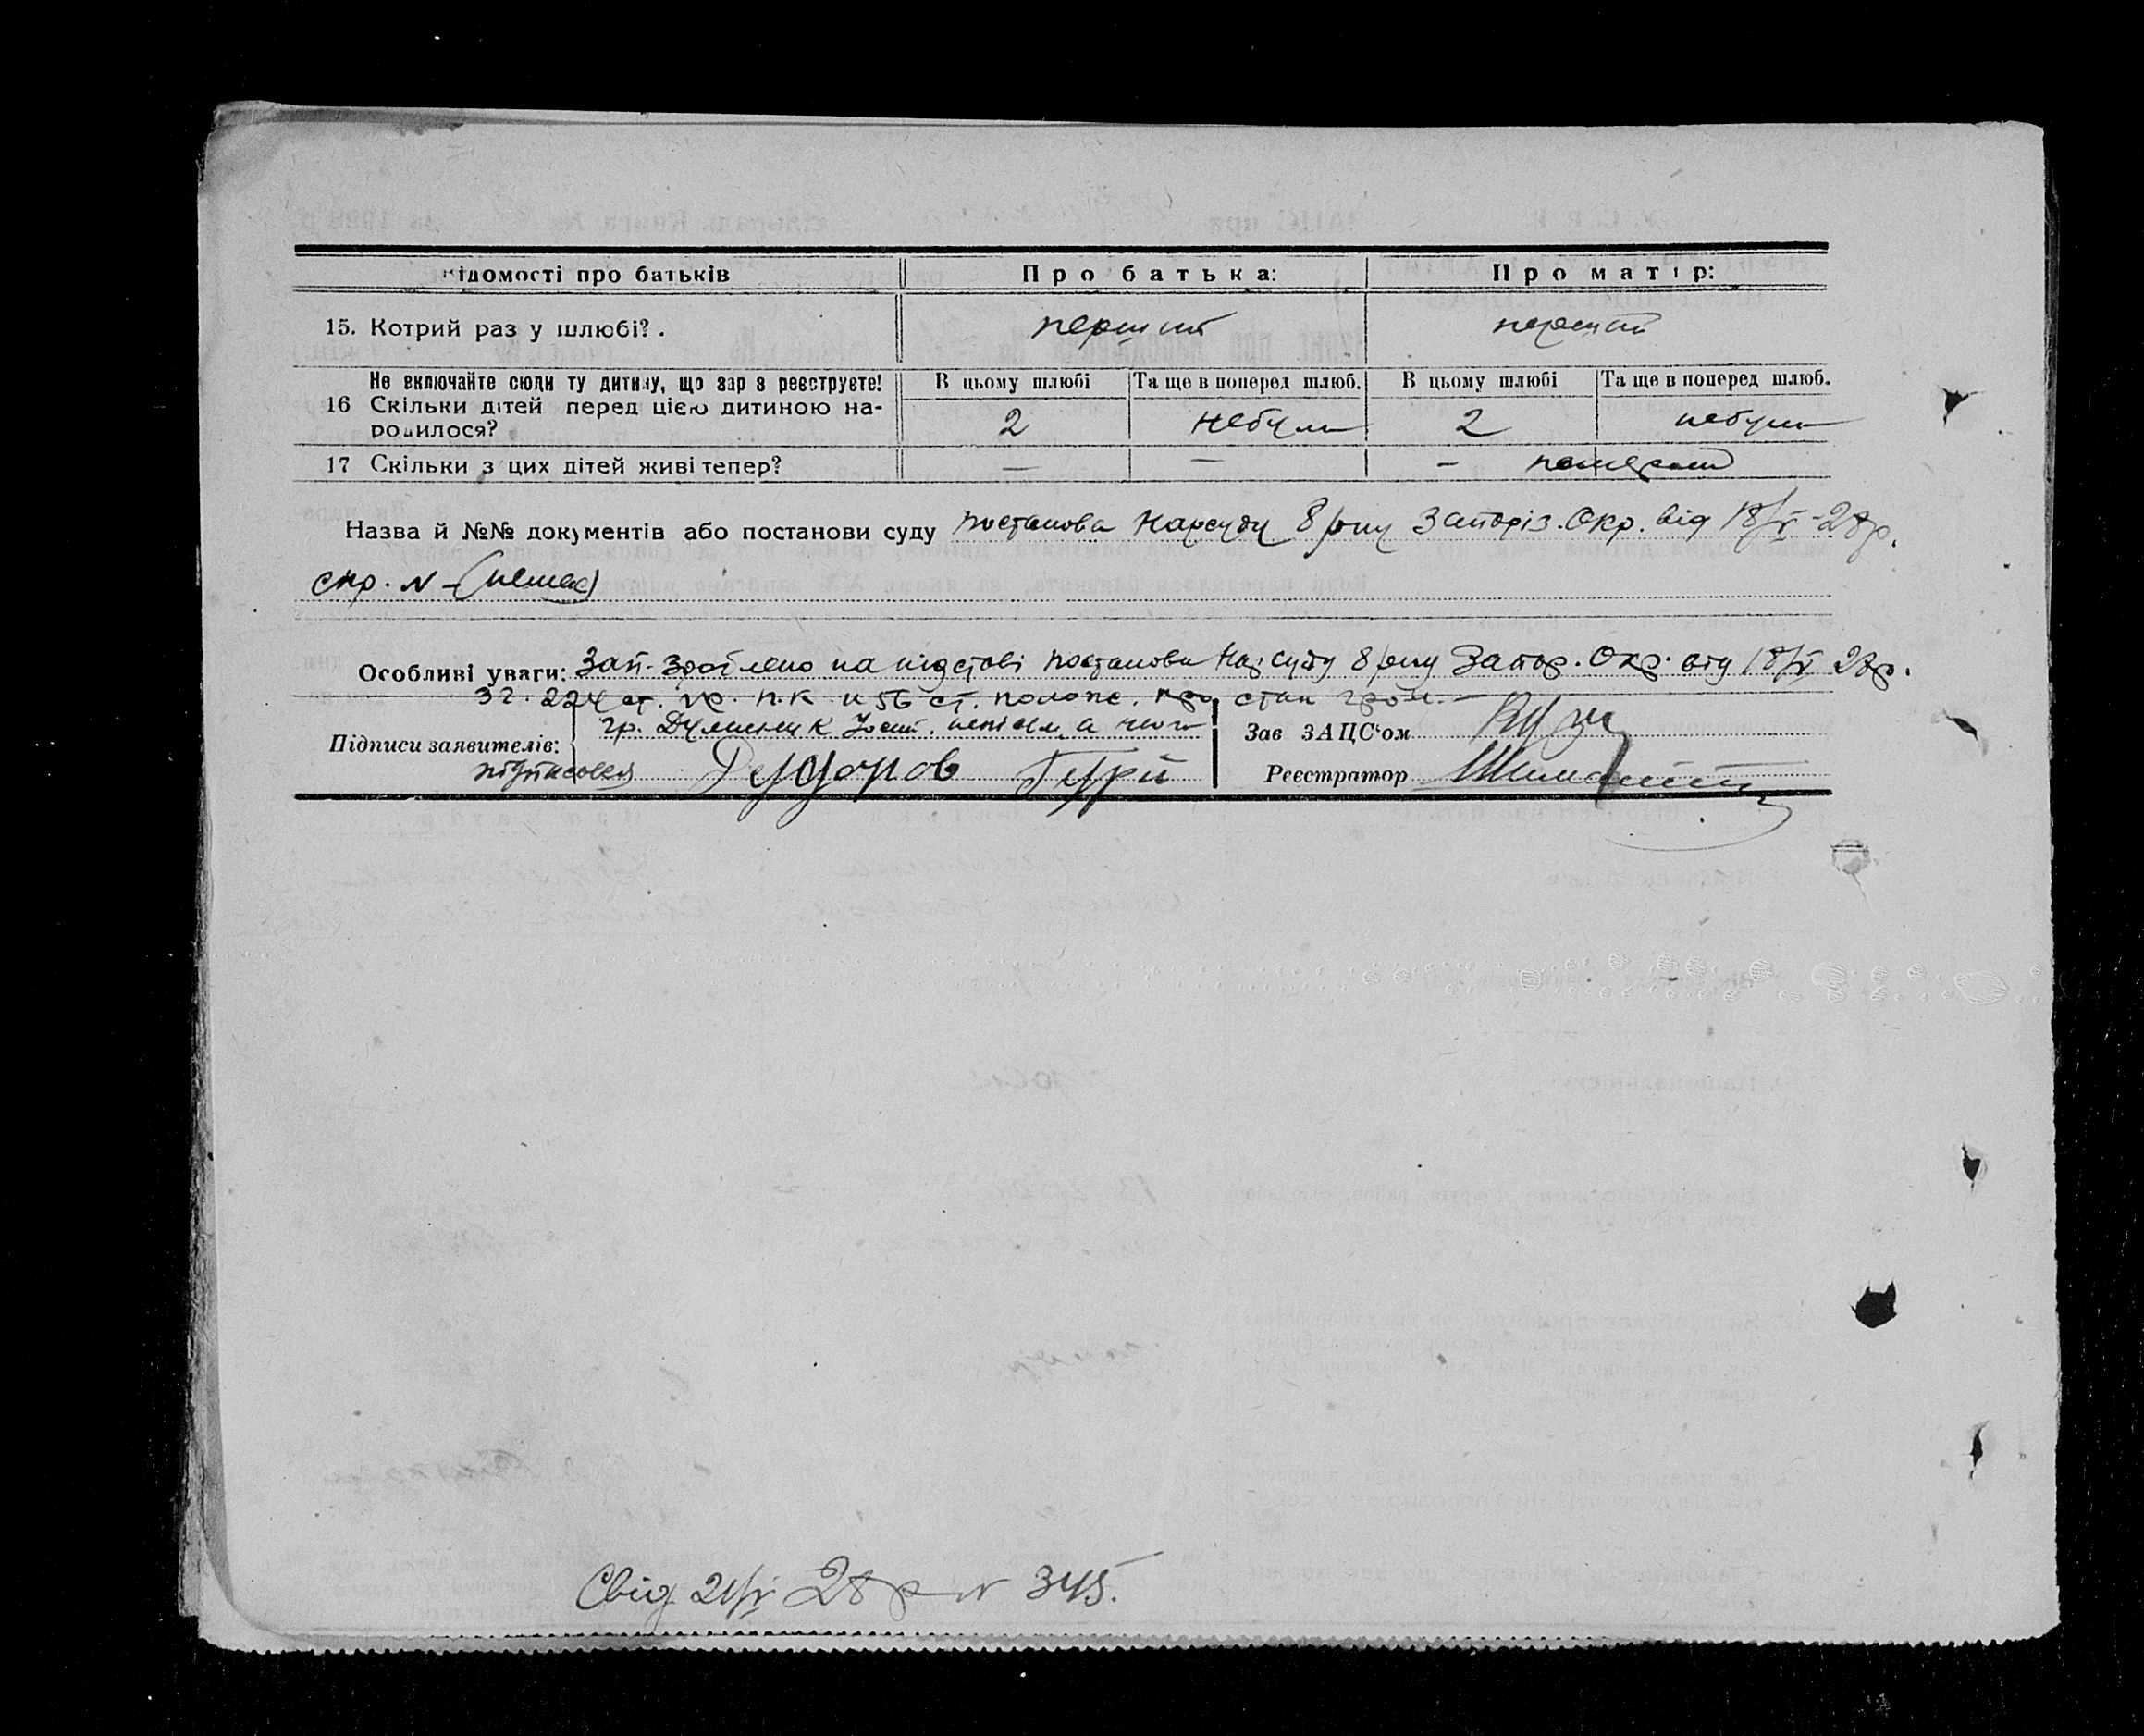 Відомості про батьків Про батька: Про матір:
15. Котрий раз у шлюбі? . перший перший
Не включайте сюди ту дитину, що зар з реєструєте! В цьому шлюбі Та ще в поперед шлюб. В цьому шлюбі Та ще в поперед шлюб.
16 Скільки дітей перед цією дитиною на-
родилося? 2 небули 2 небули
17 Скільки з цих дітей живі тепер? — — —
Назва й №№ документів або постанови суду постанова Нарсуду 8 р-ну Запоріз. Окр. від 18/V-28р.
спр. N – (немає)
Особливі уваги: Зап. зроблено на підставі постанови Нарсуду 8 р-ну Запор. Окр. від 18/V 28р.
зг. 224 ст. п.к и 56 ст. полож. про стан гром. –
Підписи заявителів: гр. непісьм. а него
підписовся
Зав ЗАЦС'ом
Реєстратор
Свід 21/V 28 р N 345.